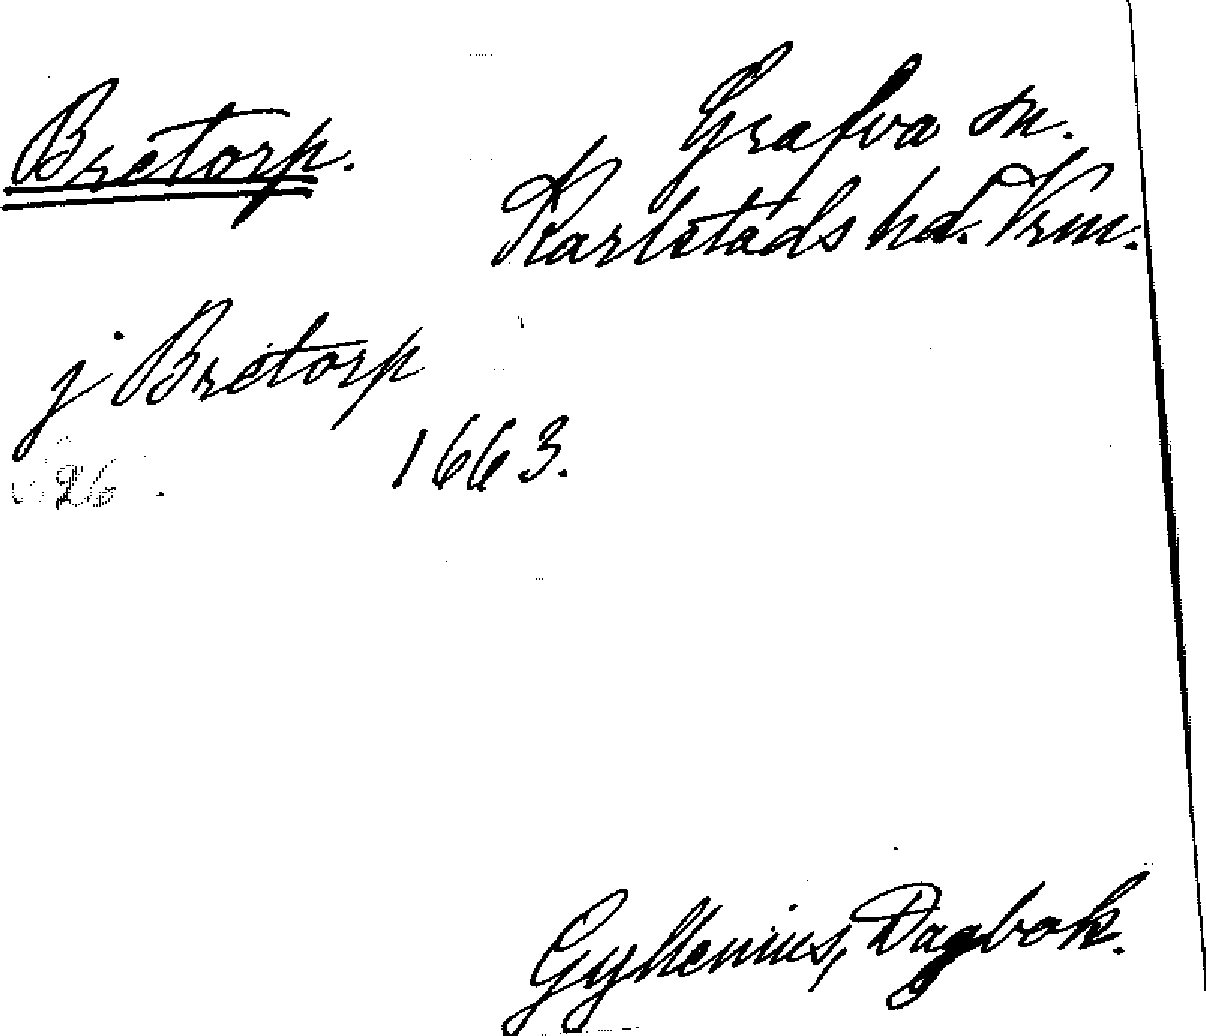 Bretorp.
Grafva sn.
Karlstads hd. Vrm.
j Bretorp
1663.
26
Gyllenius, Dagbok.